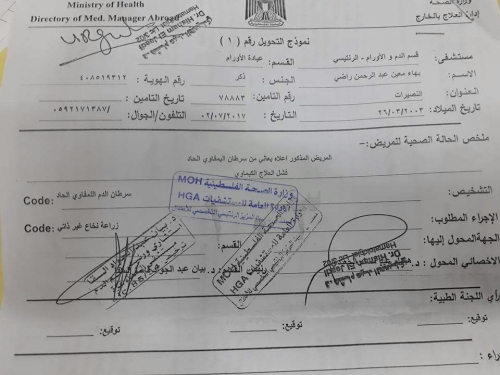 Ministry of Health
Directory of Med. Manager Abroad
وزارة الصحة
إدارة العلاج بالخارج
نموذج التحويل رقم ( ١ )
مستشفى: قسم الدم و الأورام - الرنتيسي القسم: عيادة الأورام
الاســم: بهاء معين عبد الرحمن راضي الجنس : ذكر رقم الهوية : ٤٠٨٥١٩٣١٢
العنوان: النصيرات رقم التامين: ٧٨٨٨٣ تاريخ التامين :
تاريخ الميلاد: ٢٦/٠٣/٢٠٠٣ التاريخ : ٠٢/٠٧/٢٠١٧ التلفون/الجوال: ٠٥٩٢١٧١٣٨٧/
ملخص الحالة الصحية للمريض:-
المريض المذكور اعلاه يعاني من سرطان اليمفاوي الحاد
فشل العلاج الكيماوي
التشخيص: سرطان الدم اللمفاوي الحاد Code:
الإجراء المطلوب: زراعة نخاع غير ذاتي Code:
الجهةالمحول إليها: القسم:
الاخصائي المحول : د. رئيس القسم: د. بيان عبد الجواد
وزارة الصحة الفلسطينية MOH
الإدارة العامة للمستشفيات HGA
وزارة الصحة الفلسطينية MOH
الإدارة العامة للمستشفيات HGA
رأي اللجنة الطبية:
توقيع: توقيع: توقيع: